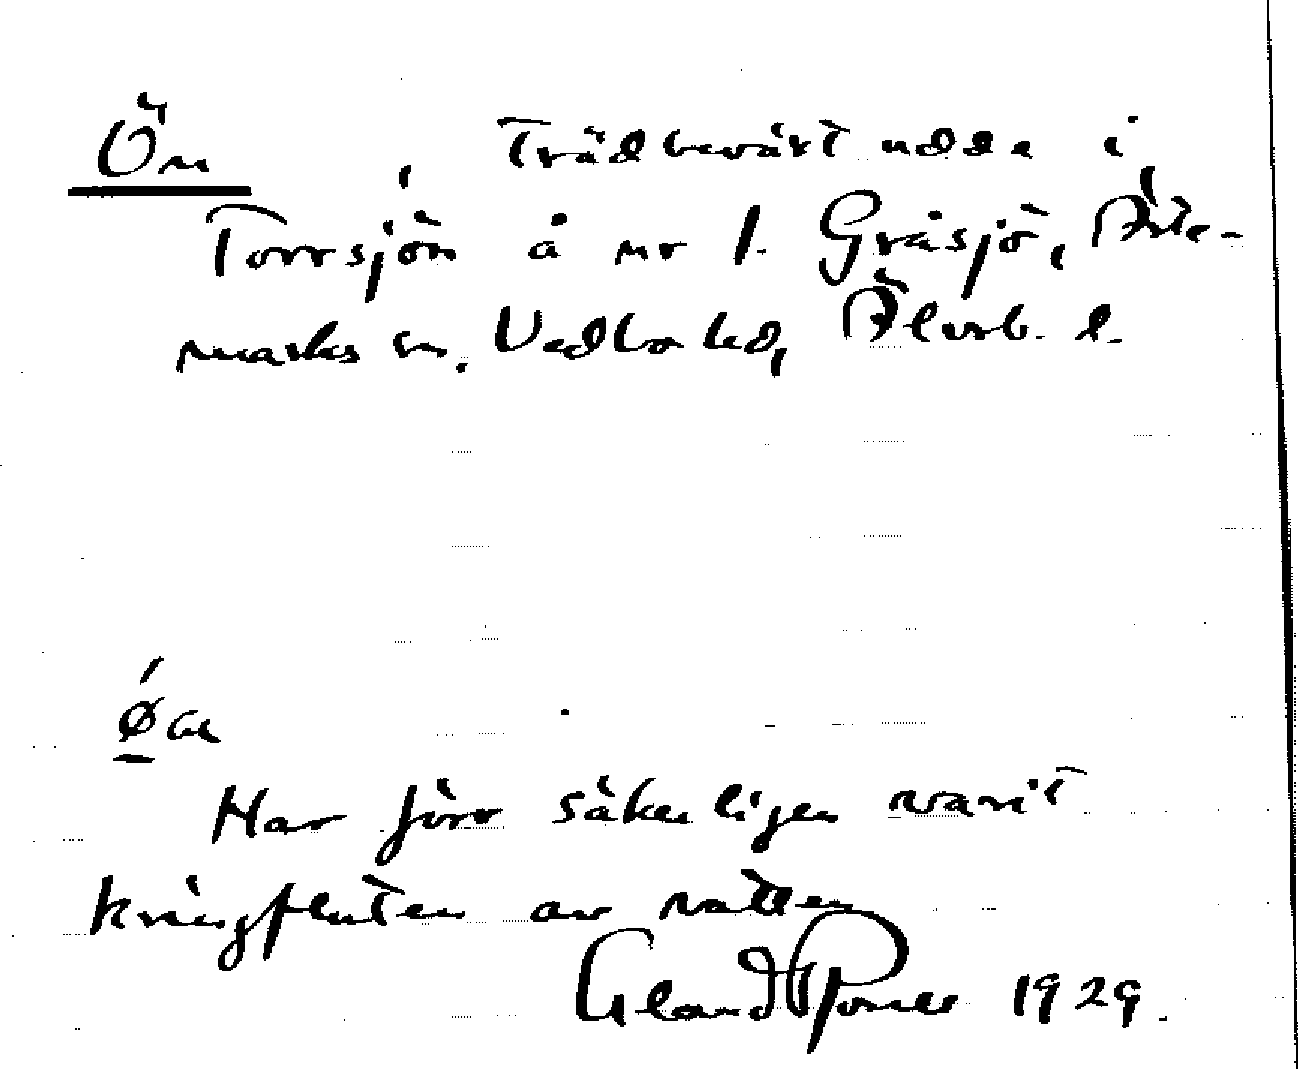 Ön, Trädbevärt udde i
Torrsjön å nr 1. Gräsjö, Ärte-
marks sn. Vedbo hd, Älvsb. l.
øa
Har förr säkerligen varit
kringfluten av vatten
1929.